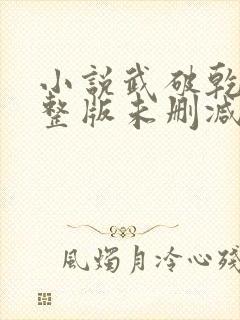 小說武破乾
整版未刪減
風燭月冷心殘